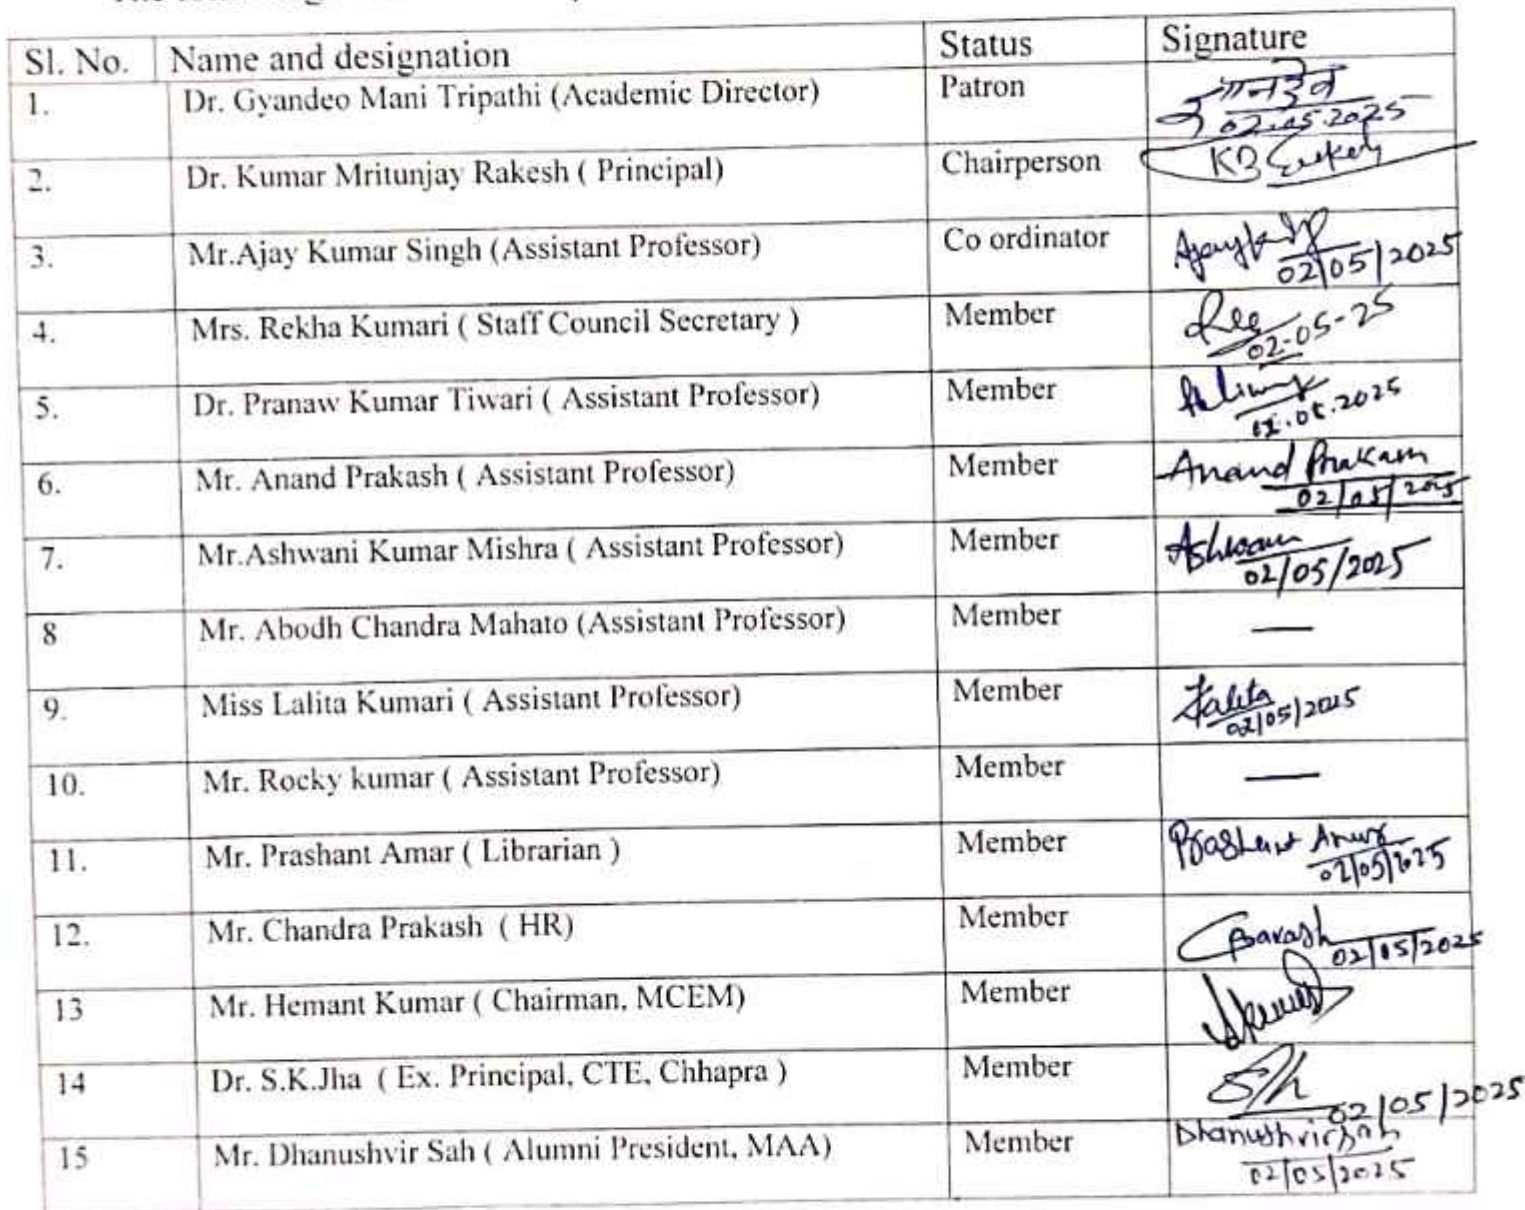 Sl. No. Name and designation Status Signature
1. Dr. Gyandeo Mani Tripathi (Academic Director) Patron ज्ञानदेव
02.05.2025
2. Dr. Kumar Mritunjay Rakesh ( Principal) Chairperson
3. Mr.Ajay Kumar Singh (Assistant Professor) Co ordinator
02/05/2025
4. Mrs. Rekha Kumari ( Staff Council Secretary ) Member
02-05-25
5. Dr. Pranaw Kumar Tiwari ( Assistant Professor) Member
6. Mr. Anand Prakash ( Assistant Professor) Member Anand Prakash
02/05/2025
7. Mr.Ashwani Kumar Mishra ( Assistant Professor) Member Ashwani
02/05/2025
8 Mr. Abodh Chandra Mahato (Assistant Professor) Member —
9. Miss Lalita Kumari ( Assistant Professor) Member Lalita
02/05/2025
10. Mr. Rocky kumar ( Assistant Professor) Member —
11. Mr. Prashant Amar ( Librarian ) Member Prashant Amar
02/05/2025
12. Mr. Chandra Prakash ( HR) Member
02/05/2025
13 Mr. Hemant Kumar ( Chairman, MCEM) Member
14 Dr. S.K.Jha ( Ex. Principal, CTE, Chhapra ) Member
02/05/2025
15 Mr. Dhanushvir Sah ( Alumni President, MAA) Member Dhanushvir Sah
02/05/2025